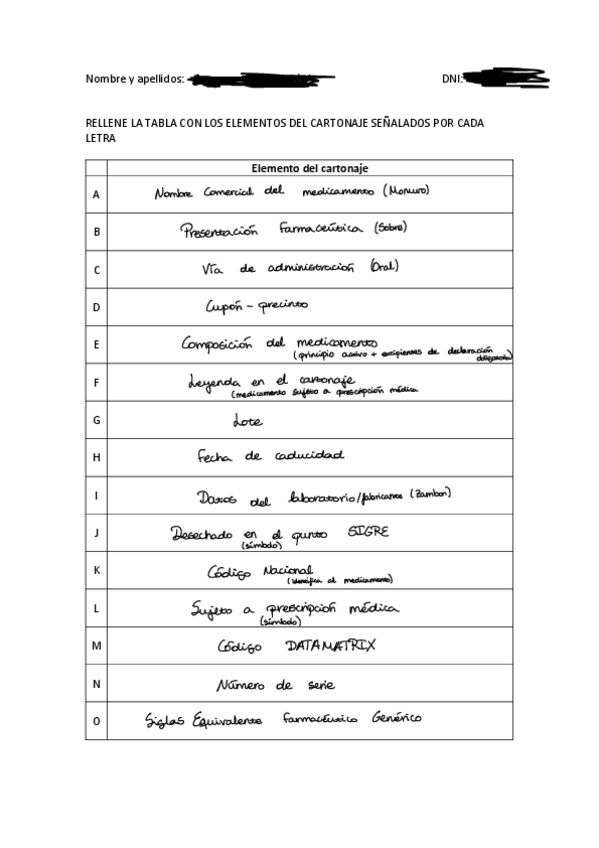 Nombre y apellidos:
DNI:
RELLENE LA TABLA CON LOS ELEMENTOS DEL CARTONAJE SEÑALADOS POR CADA
LETRA
Elemento del cartonaje
A Nombre Comercial del medicamento (Monuro)
B Presentación farmaceútica (Sobre)
C Vía de administración (Oral)
D Cupón - precinto
E Composición del medicamento
(principio activo + excipientes de declaración
obligatoria)
F Leyenda en el cartonaje
(medicamento sujeto a prescripción médica
G Lote
H Fecha de caducidad
I Datos del laboratorio/fabricante (Zambon)
J Desechado en el punto SIGRE
(símbolo)
K Código Nacional
(identifica al medicamento)
L Sujeto a prescripción médica
(símbolo)
M Código DATAMATRIX
N Número de serie
O Siglas Equivalente Farmacéutico Genérico